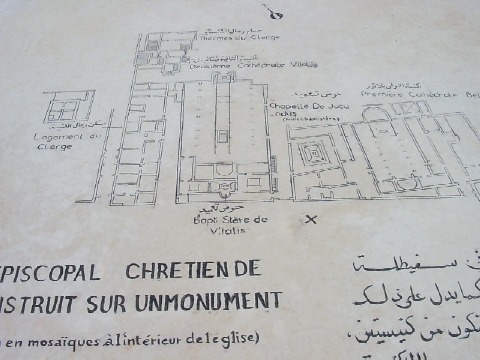 حمام رجال الكنيسة
Thermes du Clerge
Deuxième Cathédrale Vitalis
Chapelle De Jucu
ndus
Première Cathédrale Bel
Logement du
Clerge
حوض تعميد
Bapti Stère de
Vitalis
EPISCOPAL CHRETIEN DE
NSTRUIT SUR UNMONUMENT
en mosaïques à l'intérieur de l'eglise)
في سفيطلة
كما يدل على ذلك
تتكون من كنيستين،